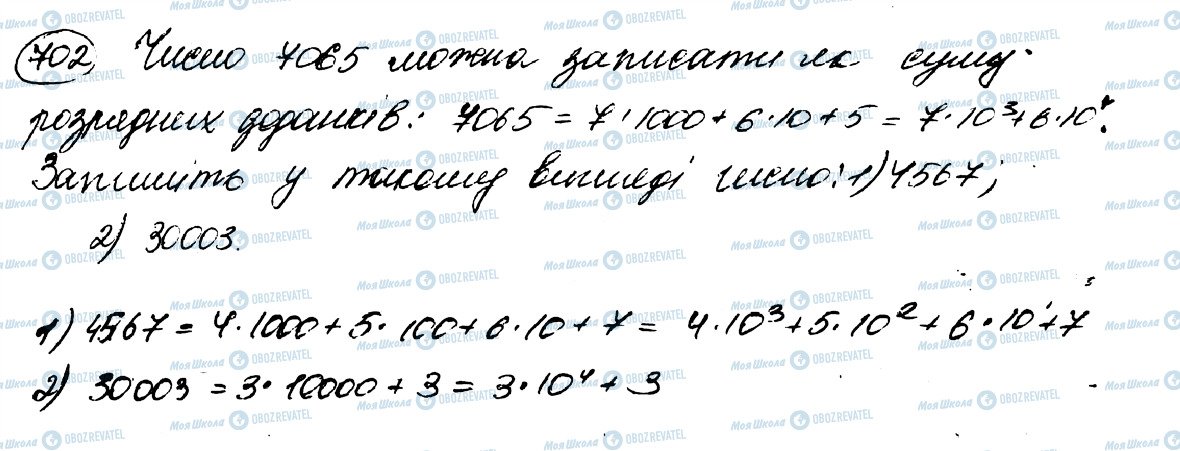 702. Число 7065 можна записати як суму
розрядних доданків: 7065 = 7·1000+6·10+5 = 7·10³+6·10¹.
Запишіть у такому вигляді число: 1) 4567;
2) 30003.
1) 4567 = 4·1000+5·100+6·10+7 = 4·10³+5·10²+6·10¹+7
2) 30003 = 3·10000+3 = 3·10⁴+3
МояШкола OBOZREVATEL